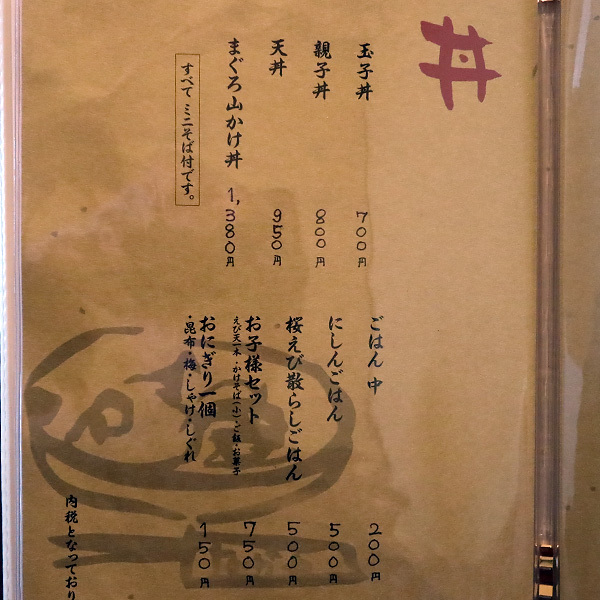 丼
玉子丼 700円
親子丼 800円
天丼 950円
まぐろ山かけ丼 1,380円
すべて ミニそば付です。
ごはん 中 200円
にしんごはん 500円
桜えび散らしごはん 500円
お子様セット 750円
えび天一本・かけそば(小)・ご飯・お菓子
おにぎり一個 150円
・昆布・梅・しゃけ・しぐれ
内税となっており